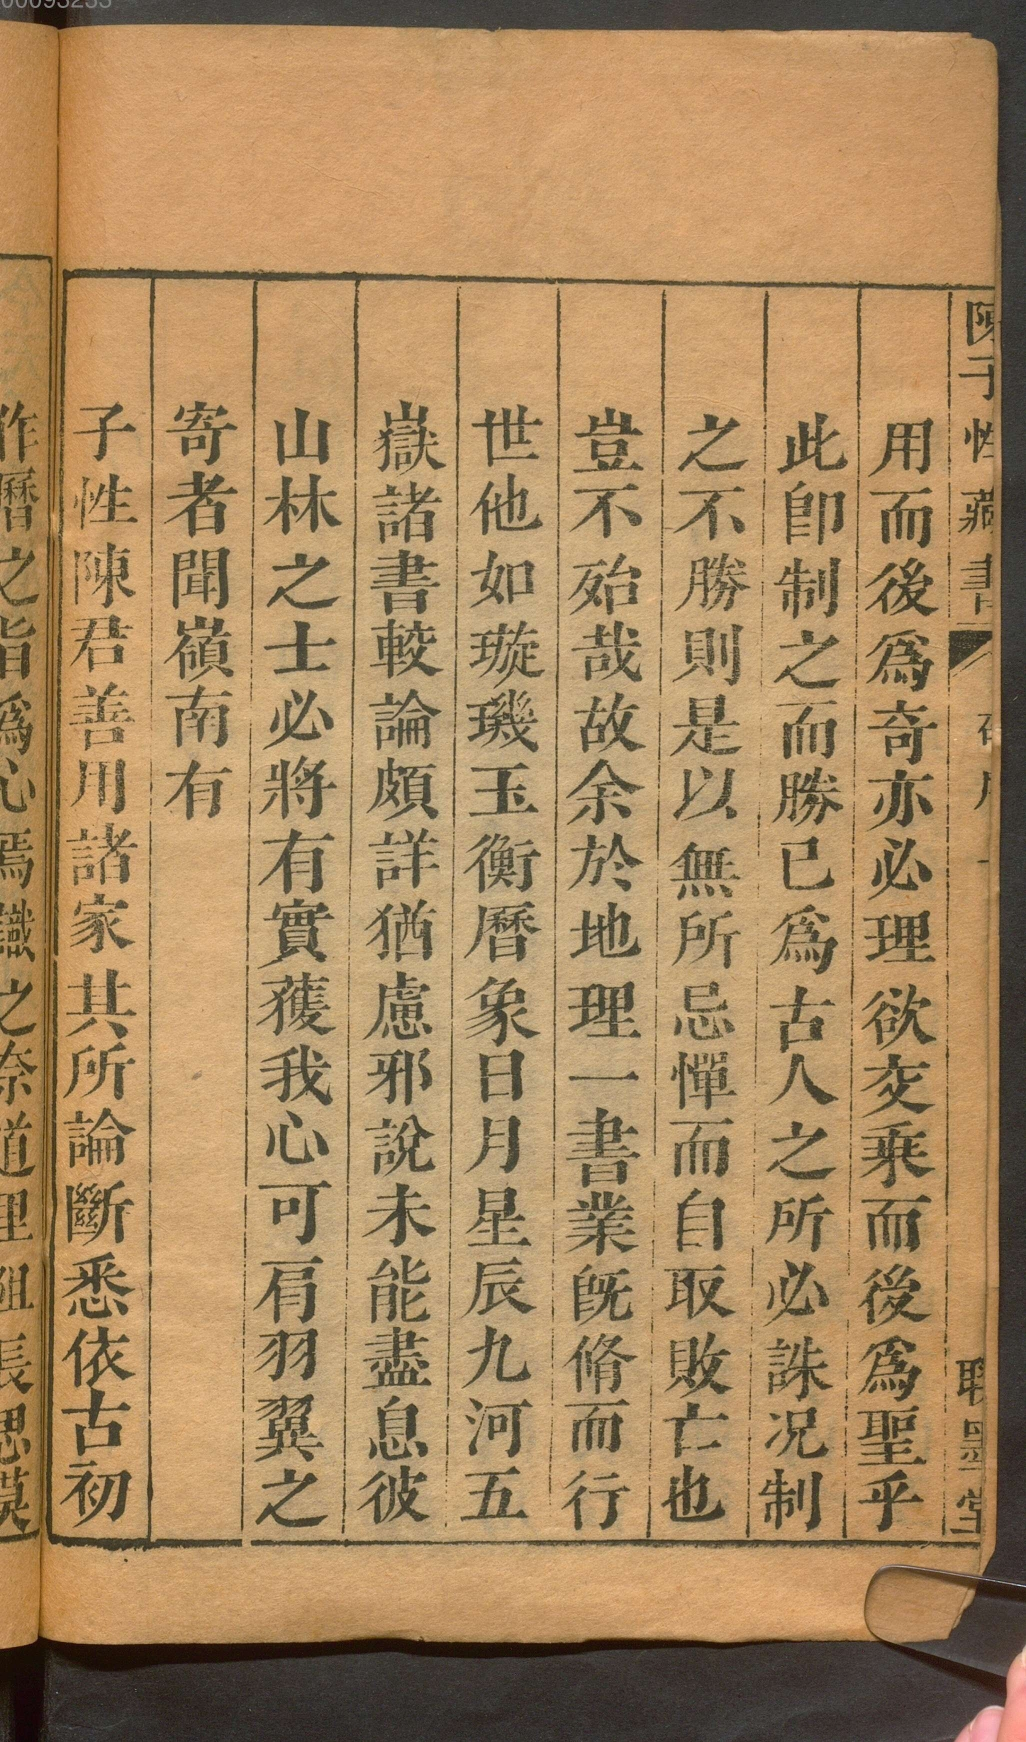 陳子性藏書
聚墨堂
用而後爲奇亦必理欲交乘而後爲聖乎
此卽制之而勝已爲古人之所必誅况制
之不勝則是以無所忌憚而自取敗亡也
豈不殆哉故余於地理一書業旣脩而行
世他如璇璣玉衡曆象日月星辰九河五
嶽諸書較論頗詳猶慮邪說未能盡息彼
山林之士必將有實獲我心可肩羽翼之
寄者聞嶺南有
子性陳君善用諸家其所論斷悉依古初
作曆之旨爲心焉識之奈道里阻長思莫